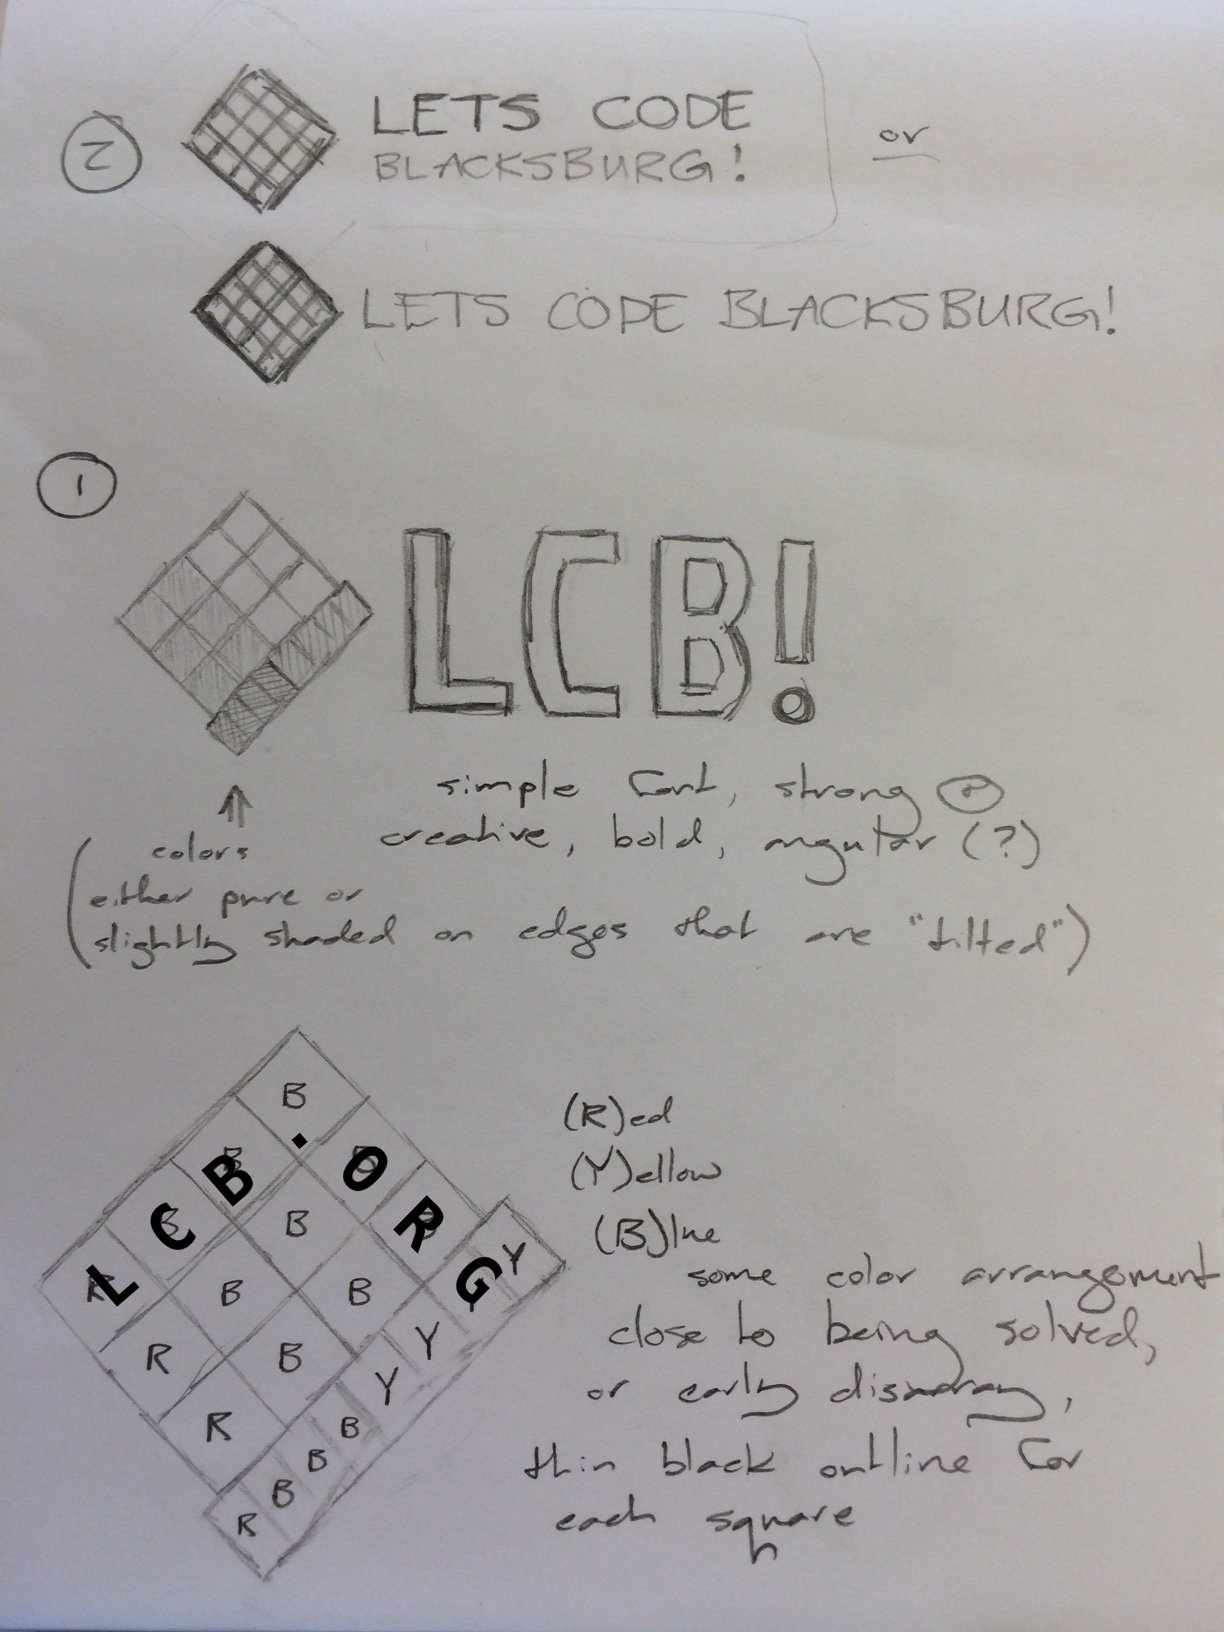 2
LETS CODE
BLACKSBURG!
or
LETS CODE BLACKSBURG!
1
LCB!
simple font, strong
creative, bold, angular (?)
colors
(either pure or
slightly shaded on edges that are "tilted")
B
LCB.ORG
B
Y
R
B
B
Y
R
B
Y
R
B
B
B
R
(R)ed
(Y)ellow
(B)lue
some color arrangement
close to being solved,
or early disarray,
thin black outline for
each square